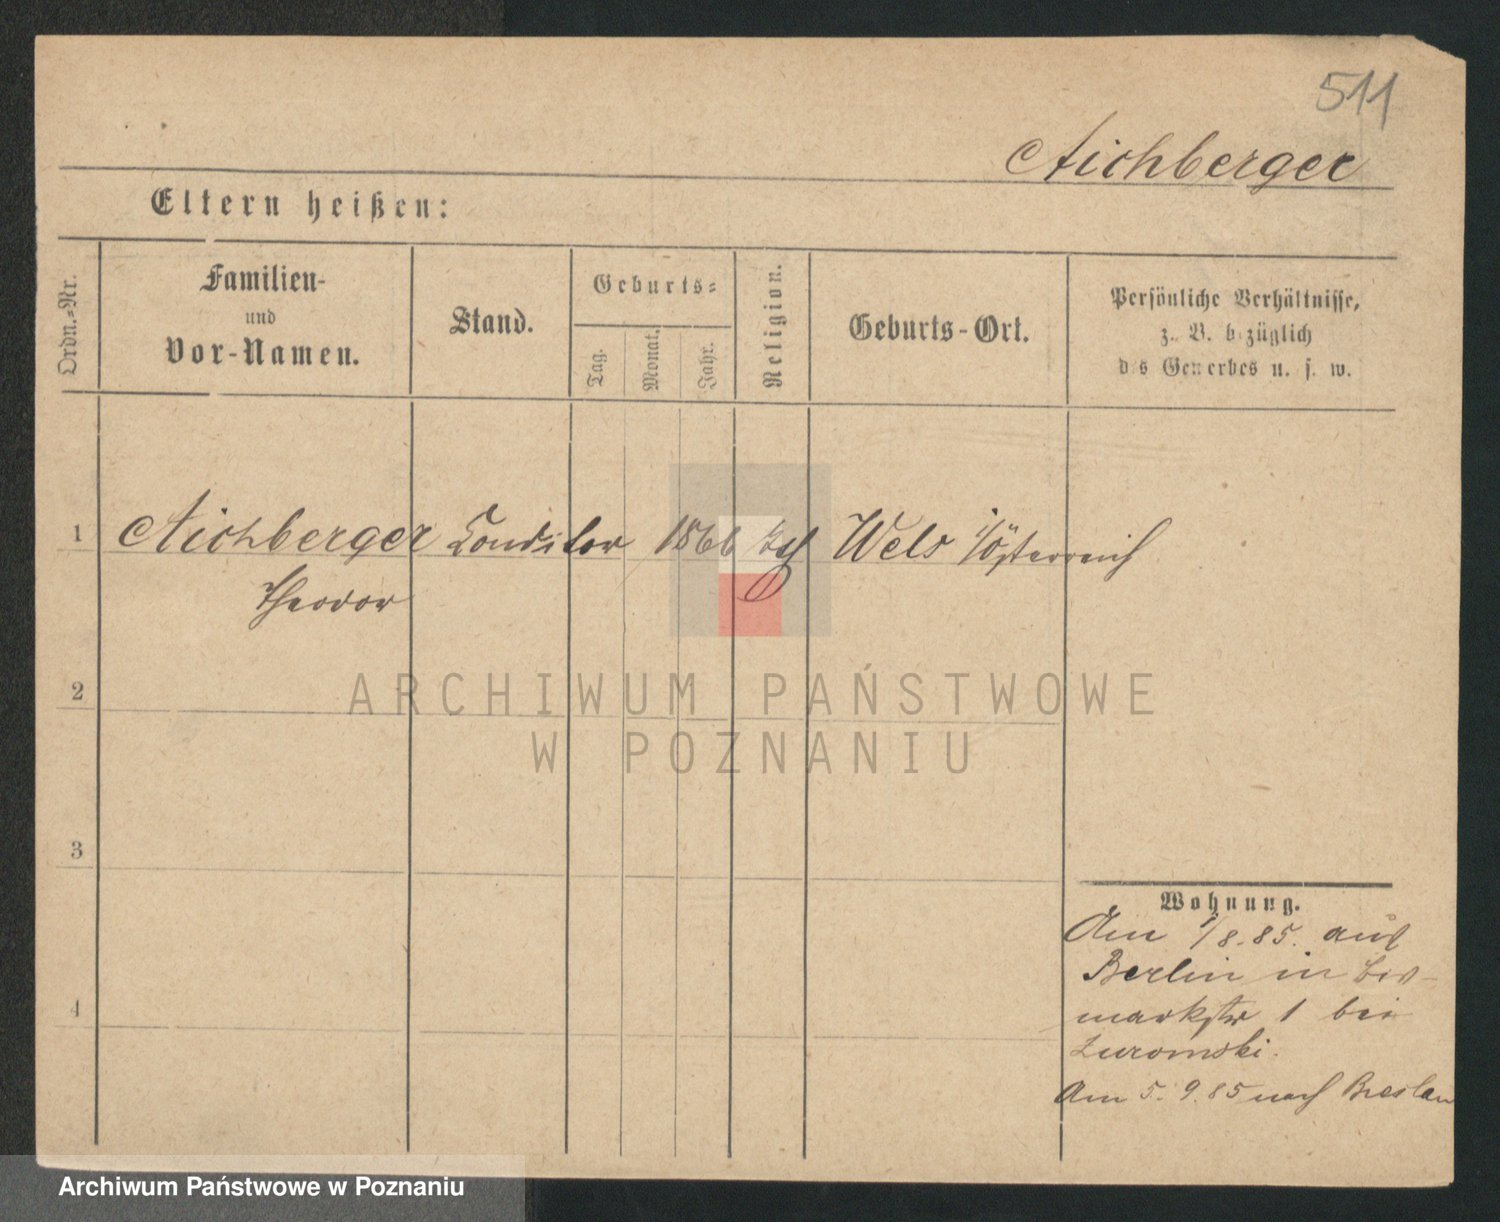 511
Aichberger
Eltern heißen:
Ordn.=Nr.
Familien-
und
Vor-Namen.
Stand.
Geburts=
Tag.
Monat.
Jahr.
Religion.
Geburts-Ort.
Persönliche Verhältnisse,
z. B. bezüglich
des Gewerbes u. s. w.
1
Aichberger Conditor 1866 kth Wels i/Österreich
Theodor
2
ARCHIWUM PAŃSTWOWE
W POZNANIU
3
Wohnung.
Am 1/8.85. aus
Berlin in Bis-
markstr 1 bei
Zuromski.
4
Am 5. 9. 85 nach Breslau
Archiwum Państwowe w Poznaniu